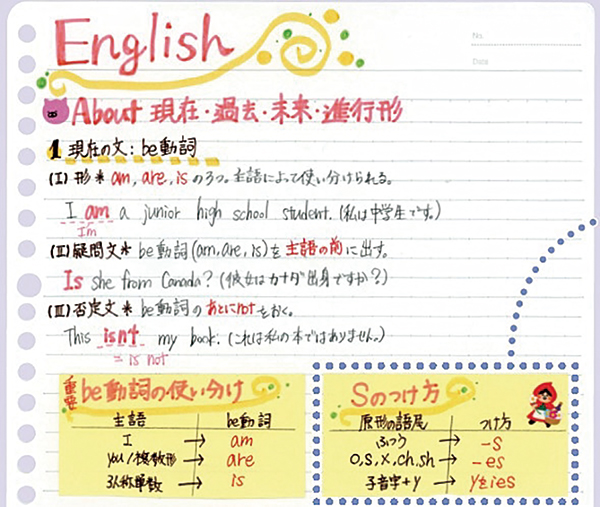 English
No.
Date
About 現在・過去・未来・進行形
1 現在の文: be動詞
(I) 形* am, are, is の3つ。主語によって使い分けられる。
I am a junior high school student. (私は中学生です。)
I'm
(II) 疑問文* be動詞(am, are, is)を主語の前に出す。
Is she from Canada? (彼女はカナダ出身ですか?)
(III) 否定文* be動詞のあとにnotをおく。
This isn't my book. (これは私の本ではありません。)
= is not
重要 be動詞の使い分け
主語 be動詞
I → am
you/複数形 → are
3人称単数 → is
Sのつけ方
原形の語尾 つけ方
ふつう → -s
o,s,x,ch,sh → -es
子音字+y → yをies